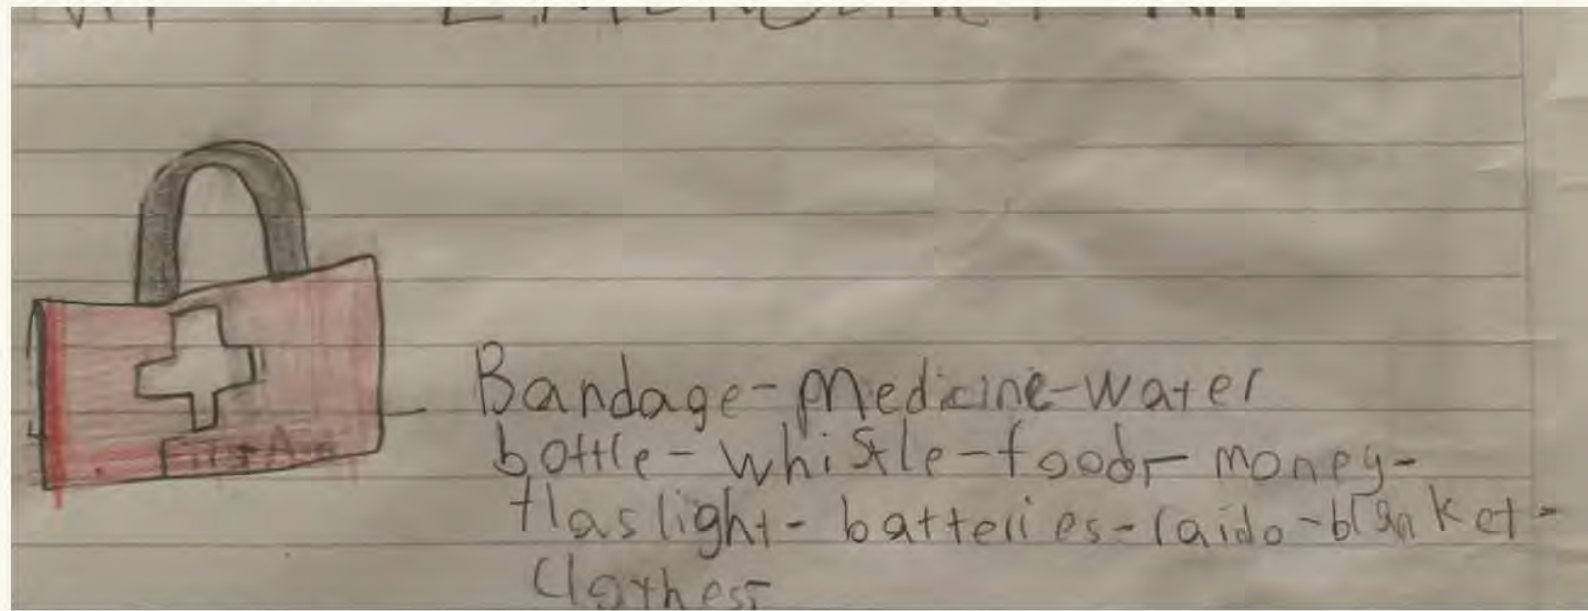 EMERGENCY Kit
First Aid
Bandage-Medicine-water
bottle-whistle-food-money-
flaslight-batteries-raido-blanket-
Clothes